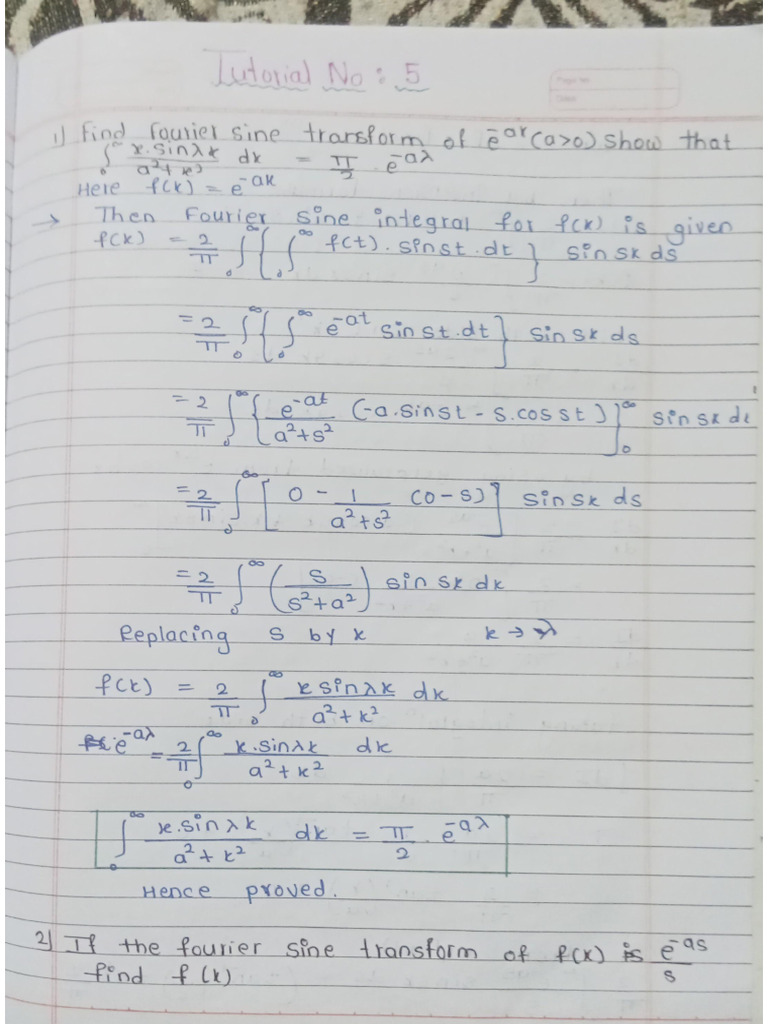 Tutorial No : 5
Page No.
Date
1) Find fourier sine transform of e^-ax (a>0) show that
∫₀^∞ x.sinλx / a²+x² dx = π/2 . e^-aλ
Here f(x) = e^-ax
→ Then Fourier sine integral for f(x) is given
f(x) = 2/π ∫₀^∞ { ∫₀^∞ f(t).sinst.dt } sin sx ds
= 2/π ∫₀^∞ { ∫₀^∞ e^-at sinst.dt } sin sx ds
= 2/π ∫₀^∞ { e^-at / a²+s² (-a.sinst - s.cosst) ]₀^∞ sin sx dx
= 2/π ∫₀^∞ [ 0 - 1/a²+s² (0-s) ] sin sx ds
= 2/π ∫₀^∞ ( s / s²+a² ) sin sx dx
Replacing s by x x → λ
f(x) = 2/π ∫₀^∞ x sinλx / a²+x² dx
e^-aλ = 2/π ∫₀^∞ x.sinλx / a²+x² dx
∫₀^∞ x.sinλx / a²+x² dx = π/2 . e^-aλ
Hence proved.
2) If the fourier sine transform of f(x) is e^-as / s
find f(x)